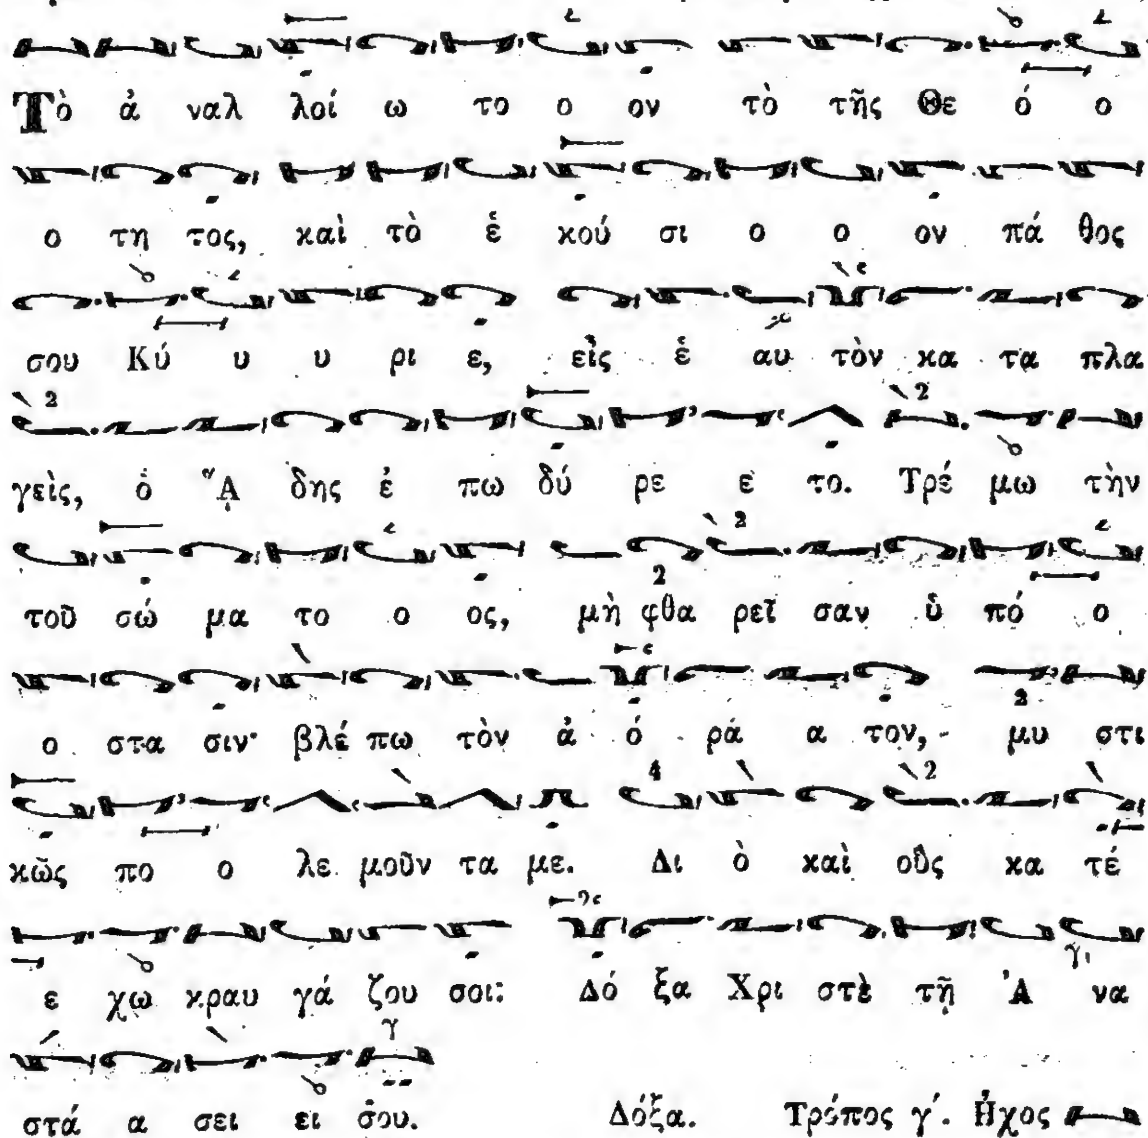 Τὸ ἀ ναλ λοί ω το ο ον τὸ τῆς Θε ό ο
ο τη τος, καὶ τὸ ἑ κού σι ο ο ον πά θος
σου Κύ υ υ ρι ε, εἰς ἑ αυ τὸν κα τα πλα
γεὶς, ὁ ᾍ δης ἐ πω δύ ρε ε το. Τρέ μω τὴν
τοῦ σώ μα το ο ος, μὴ φθα ρεῖ σαν ὑ πό ο
ο στα σιν· βλέ πω τὸν ἀ ό ρά α τον, μυ στι
κῶς πο ο λε μοῦν τα με. Δι ὸ καὶ οὓς κα τέ
ε χω κραυ γά ζου σοι: Δό ξα Χρι στὲ τῇ Ἀ να
στά α σει ει σου. Δόξα. Τρόπος γ΄. Ἦχος